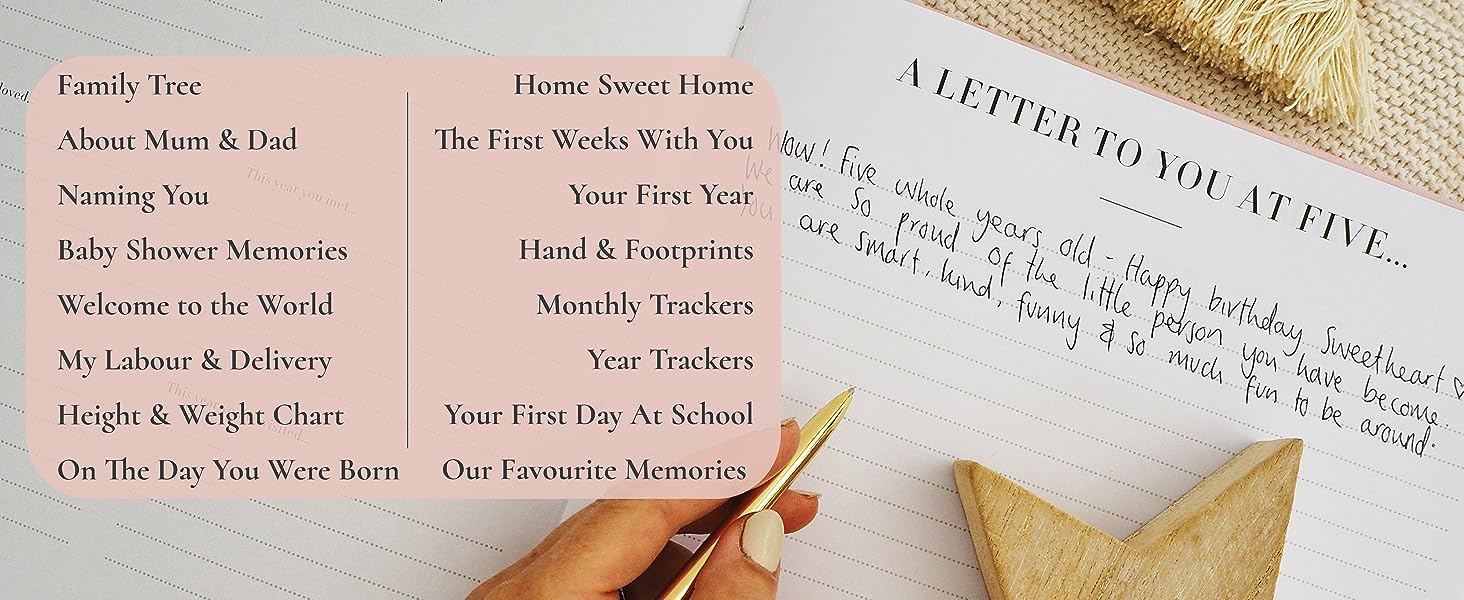 Family Tree
About Mum & Dad
Naming You
Baby Shower Memories
Welcome to the World
My Labour & Delivery
Height & Weight Chart
On The Day You Were Born
Home Sweet Home
The First Weeks With You
Your First Year
Hand & Footprints
Monthly Trackers
Year Trackers
Your First Day At School
Our Favourite Memories
loved.
This year you met...
This year
A LETTER TO YOU AT FIVE...
Wow! Five whole years old - Happy birthday Sweetheart ♡
We are so proud of the little person you have become.
You are smart, kind, funny & so much fun to be around.